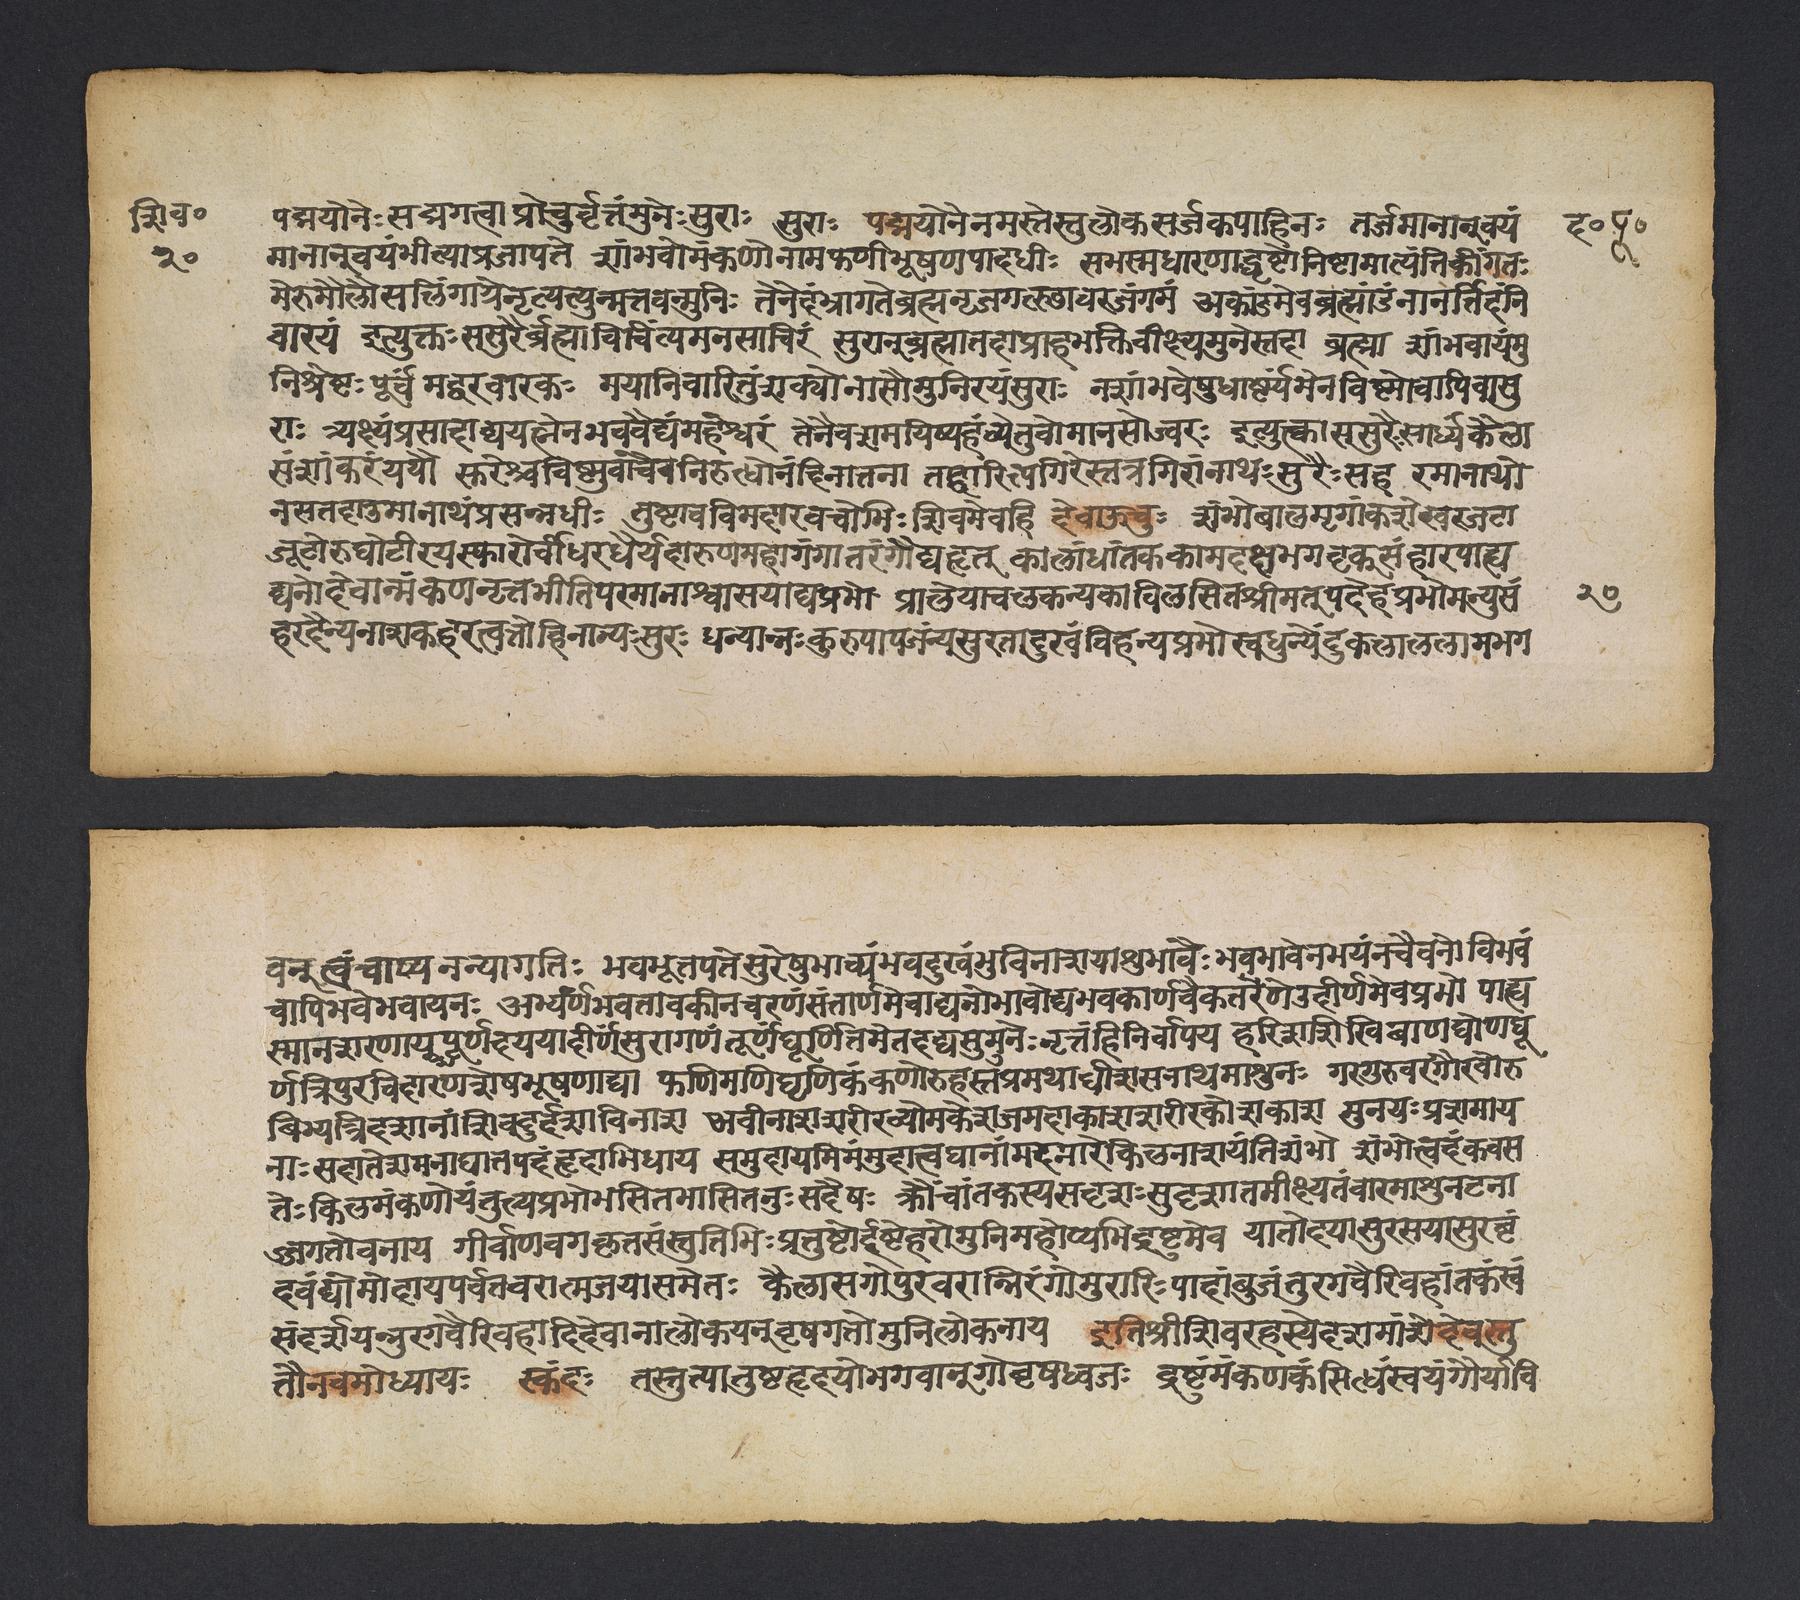 शिव० पद्मयोनेः सद्मगत्वा प्रोचुर्वृत्तंमुनेः सुराः सुराः पद्मयोनेनमस्तेस्तु लोकसर्जकपाहिनः तर्जमानानुवयं द०पू०
२० मानानुवयंभीत्याप्रजापते शांभवोमंकणोनामफणीभूषणपादधीः सभस्मधारणाद्धृष्टोनिष्टामात्यंतिकींगतः
मेरुमौलौसलिंगायेनृत्यत्युन्मत्तवन्मुनिः तेनेदंभ्रागतेब्रह्मन्जगत्स्थावरजंगमं अकांडमेवब्रह्मांडंनानर्त्तिहंनि
वारय इत्युक्तः ससुरैर्ब्रह्माविचिंत्यमनसाचिरं सुरान्ब्रह्मातदाप्राहभक्तिवीक्ष्यमुनेस्तदा ब्रह्मा शांभवायंमु
निश्रेष्टः पूर्वं मद्वरवारकः मयानिवारितुंशक्योनासौमुनिरयंसुराः नशांभवेषुधार्ष्ट्यमेनविष्णोवापिवासु
राः त्र्यक्ष्यंप्रसादाद्ययत्नेनभववैद्यंमहेश्वरं तेनैवशमयिष्यहंव्येतुवोमानसोज्वरः इत्युत्कासुसुरैःसार्ध्यंकैला
संशंकरंययौ
नसतदाउमानाथंप्रसन्नधीः तुष्टावविमदारवचोभिः शिवमेवहि देवाऊचुः शंभोबालमृगांकशेखरजटा
जूटोरुघोटीरयस्फारोर्वीधरधैर्यदारुणमहागंगातरंगौघहृत् कालांधांतककामदक्षभगदृक्संहारपाह्य
द्यनोदेवान्मंकणनृत्तभीतिपरमानाश्वासयाद्यप्रभो प्रालेयाचलकन्यकाविलसितश्रीमत्पदेहप्रभोमत्युसं २०
हरदैन्यनाशकहरत्वत्तोहिनाज्यः सुरः धन्यान्नः कुरुपापजन्यसुरतादुःखंविहन्यप्रभोस्वधुन्येंदुकलाललामभग
वन्त्वंचाप्यनन्यागतिः भवभूतपतेसुरेषुभाव्यंभवदुखंभुविनाशयाशुभावैः भवभावेनभयंनचैवनोविभवं
चापिभवेभवायनः अभ्यर्णभवतावकीनचरणंसंतार्णमेवाद्यनोभावोद्यभवकार्णवैकतरणेउदीर्णमेवप्रभो पाह्य
स्मानशरणायपूर्णहययादीर्णंसुरागणंतूर्णंघूर्णितमेतदद्यसुमुनेः नृत्तंहिनिर्वापय हरिशशिखिबाणघोणघू
र्णत्रिपुरविदारणशेषभूषणाद्या फणिमणिघृणिकंकणोरुहस्तप्रमथाधीशसनाथमाशुनः गरगुरुवरगौरवोरु
बिभ्यत्रिदशानांशिवदुर्दशाविनाश अवीनाशशरीरव्योमकेशजमहाकाशशरीरकोशकाश सुनयः प्रशमाय
नाः सुहातेशमनाघातपदंहृदाभिधाय समुदायमिमंमुदात्वघानांमदमारोकिलनाशयंतिशंभो शंभोत्वदंकवस
तेः किलमंकणोयंतुत्यप्रभोभसितभासितनुः सदैषः क्रौंचांतकस्यसदृशः सुदृशातमीक्ष्यतंवारमाशुनटना
ज्जगतोवनाय गीर्वाणवगकृतसंस्तुतिभिः प्रतुष्टोर्दृष्टेहरोमुनिमहोप्यभिद्रष्टुमेव यातोदयासुरसयासुरवृं
दवंद्योमोदायपर्वतवरात्मजयासमेतः कैलासगोपुरवरान्निरंगोमुरारिः पादांबुजंतुरगवैरिवहांतकंस्वं
संदृर्शयन्मुरगवैरिवहादिदेवानालोकयन्वृषगतोमुनिलोकनाय इतिश्रीशिवरहस्येदशमांशेदेवस्तु
तौनवमोध्यायः स्कंदः तस्तुत्यातुष्टहृदयोभगवान्गोवृषध्वजः द्रष्टुंमंकणकंसिध्धंस्वयंगौर्यावि